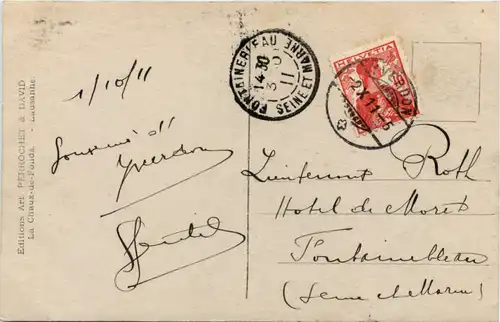 Editions Art. PERROCHET & DAVID
La Chaux-de-Fonds. - Lausanne
1/10/11
Souvenir d'
Yverdon
FONTAINEBLEAU
14 30
3
11
SEINE ET MARNE
HELVETIA
Lieutenant Roth
Hotel de Moret
Fontainebleau
(Seine et Marne)